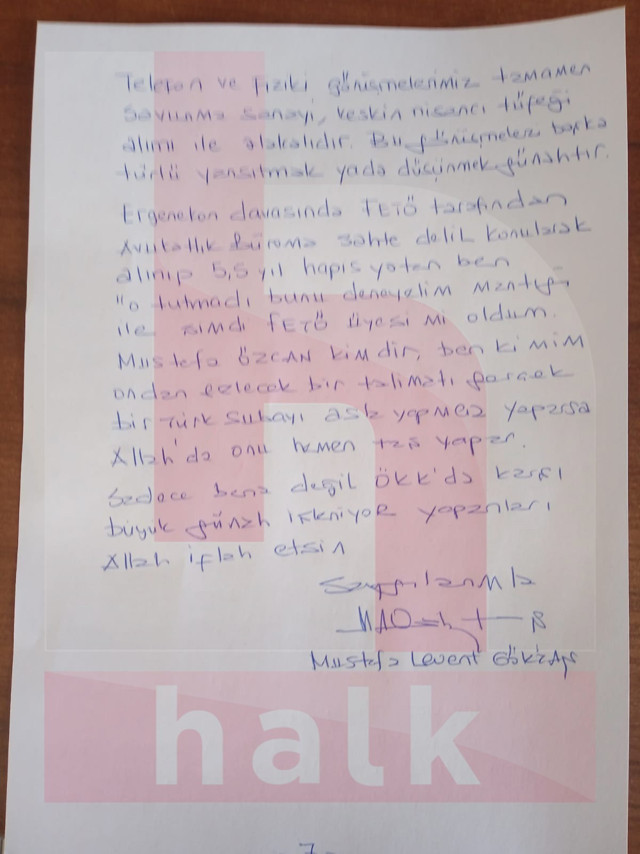 Telefon ve fiziki görüşmelerimiz tamamen
savunma sanayi, keskin nişancı tüfeği
alımı ile alakalıdır. Bu görüşmeleri başka
türlü yansıtmak yada düşünmek günahtır.
Ergenekon davasında FETÖ tarafından
Avukatlık Büroma sahte delil konularak
alınıp 5,5 yıl hapis yatan ben
"o tutmadı bunu deneyelim mantığı
ile şimdi FETÖ üyesi mi oldum.
Mustafa ÖZCAN kimdir, ben kimim
ondan gelecek bir talimatı gerçek
bir Türk Subayı asla yapmaz yaparsa
Allah'da onu hemen taş yapar.
Sadece bana değil ÖKK'da karşı
büyük günah işleniyor yapanları
Allah iflah etsin
Saygılarımla
Mustafa Levent GÖKTAŞ
halk
- 7 -